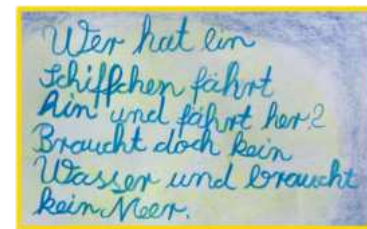 Wer hat ein
Schiffchen fährt
hin und fährt her?
Braucht doch kein
Wasser und braucht
kein Meer.